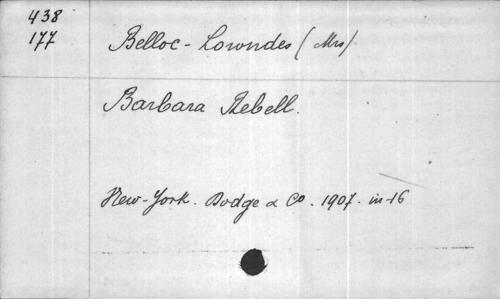 438
177
Belloc-Lowndes (Mrs)
Barbara Rebell.
New-York. Dodge & Co. 1907. in-16